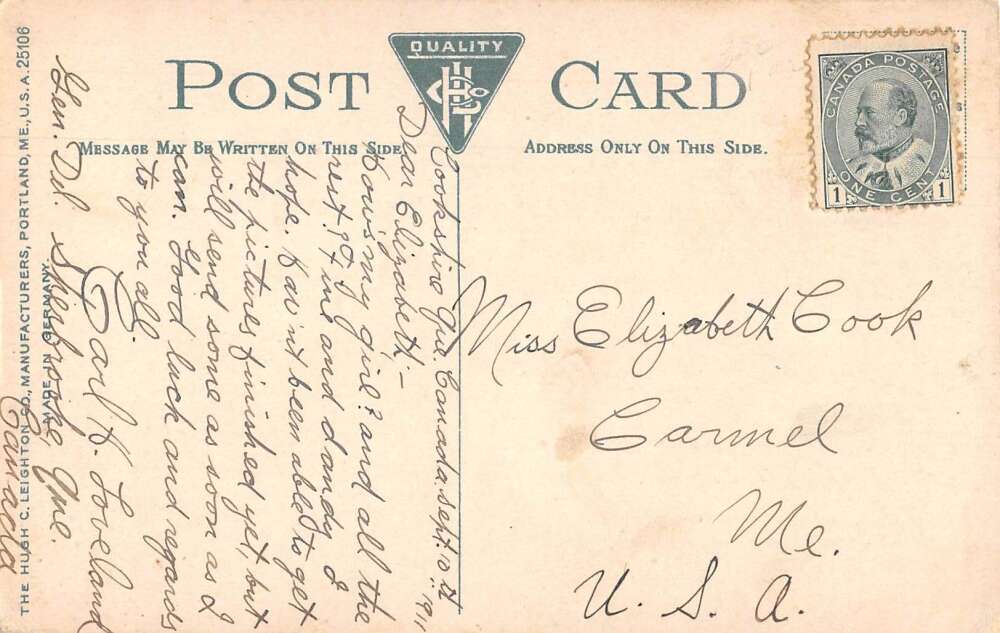 POST CARD
QUALITY
MESSAGE MAY BE WRITTEN ON THIS SIDE
ADDRESS ONLY ON THIS SIDE.
CANADA POSTAGE
ONE CENT
1 1
Cookshire Que. Canada Sept. 10 1911
Dear Elizabeth:-
How's my girl? and all the
rest? Fine and dandy I
hope. Hav'nt been able to get
the pictures finished yet, but
will send some as soon as I
can. Good luck and regards
to you all.
Earl H. Loveland
Gen. Del. Sherbrooke, Que.
Canada
Miss Elizabeth Cook
Carmel
Me.
U. S. A.
THE HUGH C. LEIGHTON CO., MANUFACTURERS, PORTLAND, ME., U.S.A. 25106
MADE IN GERMANY.